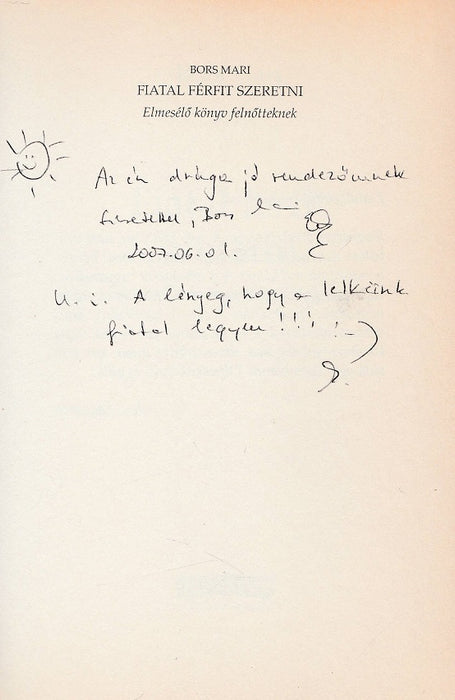 BORS MARI
FIATAL FÉRFIT SZERETNI
Elmesélő könyv felnőtteknek
Az én drága jó rendezőmnek
Szeretettel, Bors
2007.06.01.
U.i. A lényeg, hogy a lelkünk
fiatal legyen!!! :-)